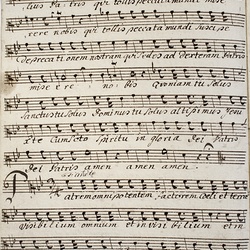 lius Patris qui tollis peccata mundi mise
rere nobis qui tollis peccata mundi suscipe
deprecationem nostram qui sedes ad dexteram Patris
miserere nobis Quoniam tu solus
Sanctus tu solus Dominus tu solus altissimus Jesu
Xte Cum Scto Spiritu in gloria dei Patris
dei Patris amen amen amen.
Patrem omnipotentem, factorem caeli et terrae
visibilium omnium et invisibilium et in